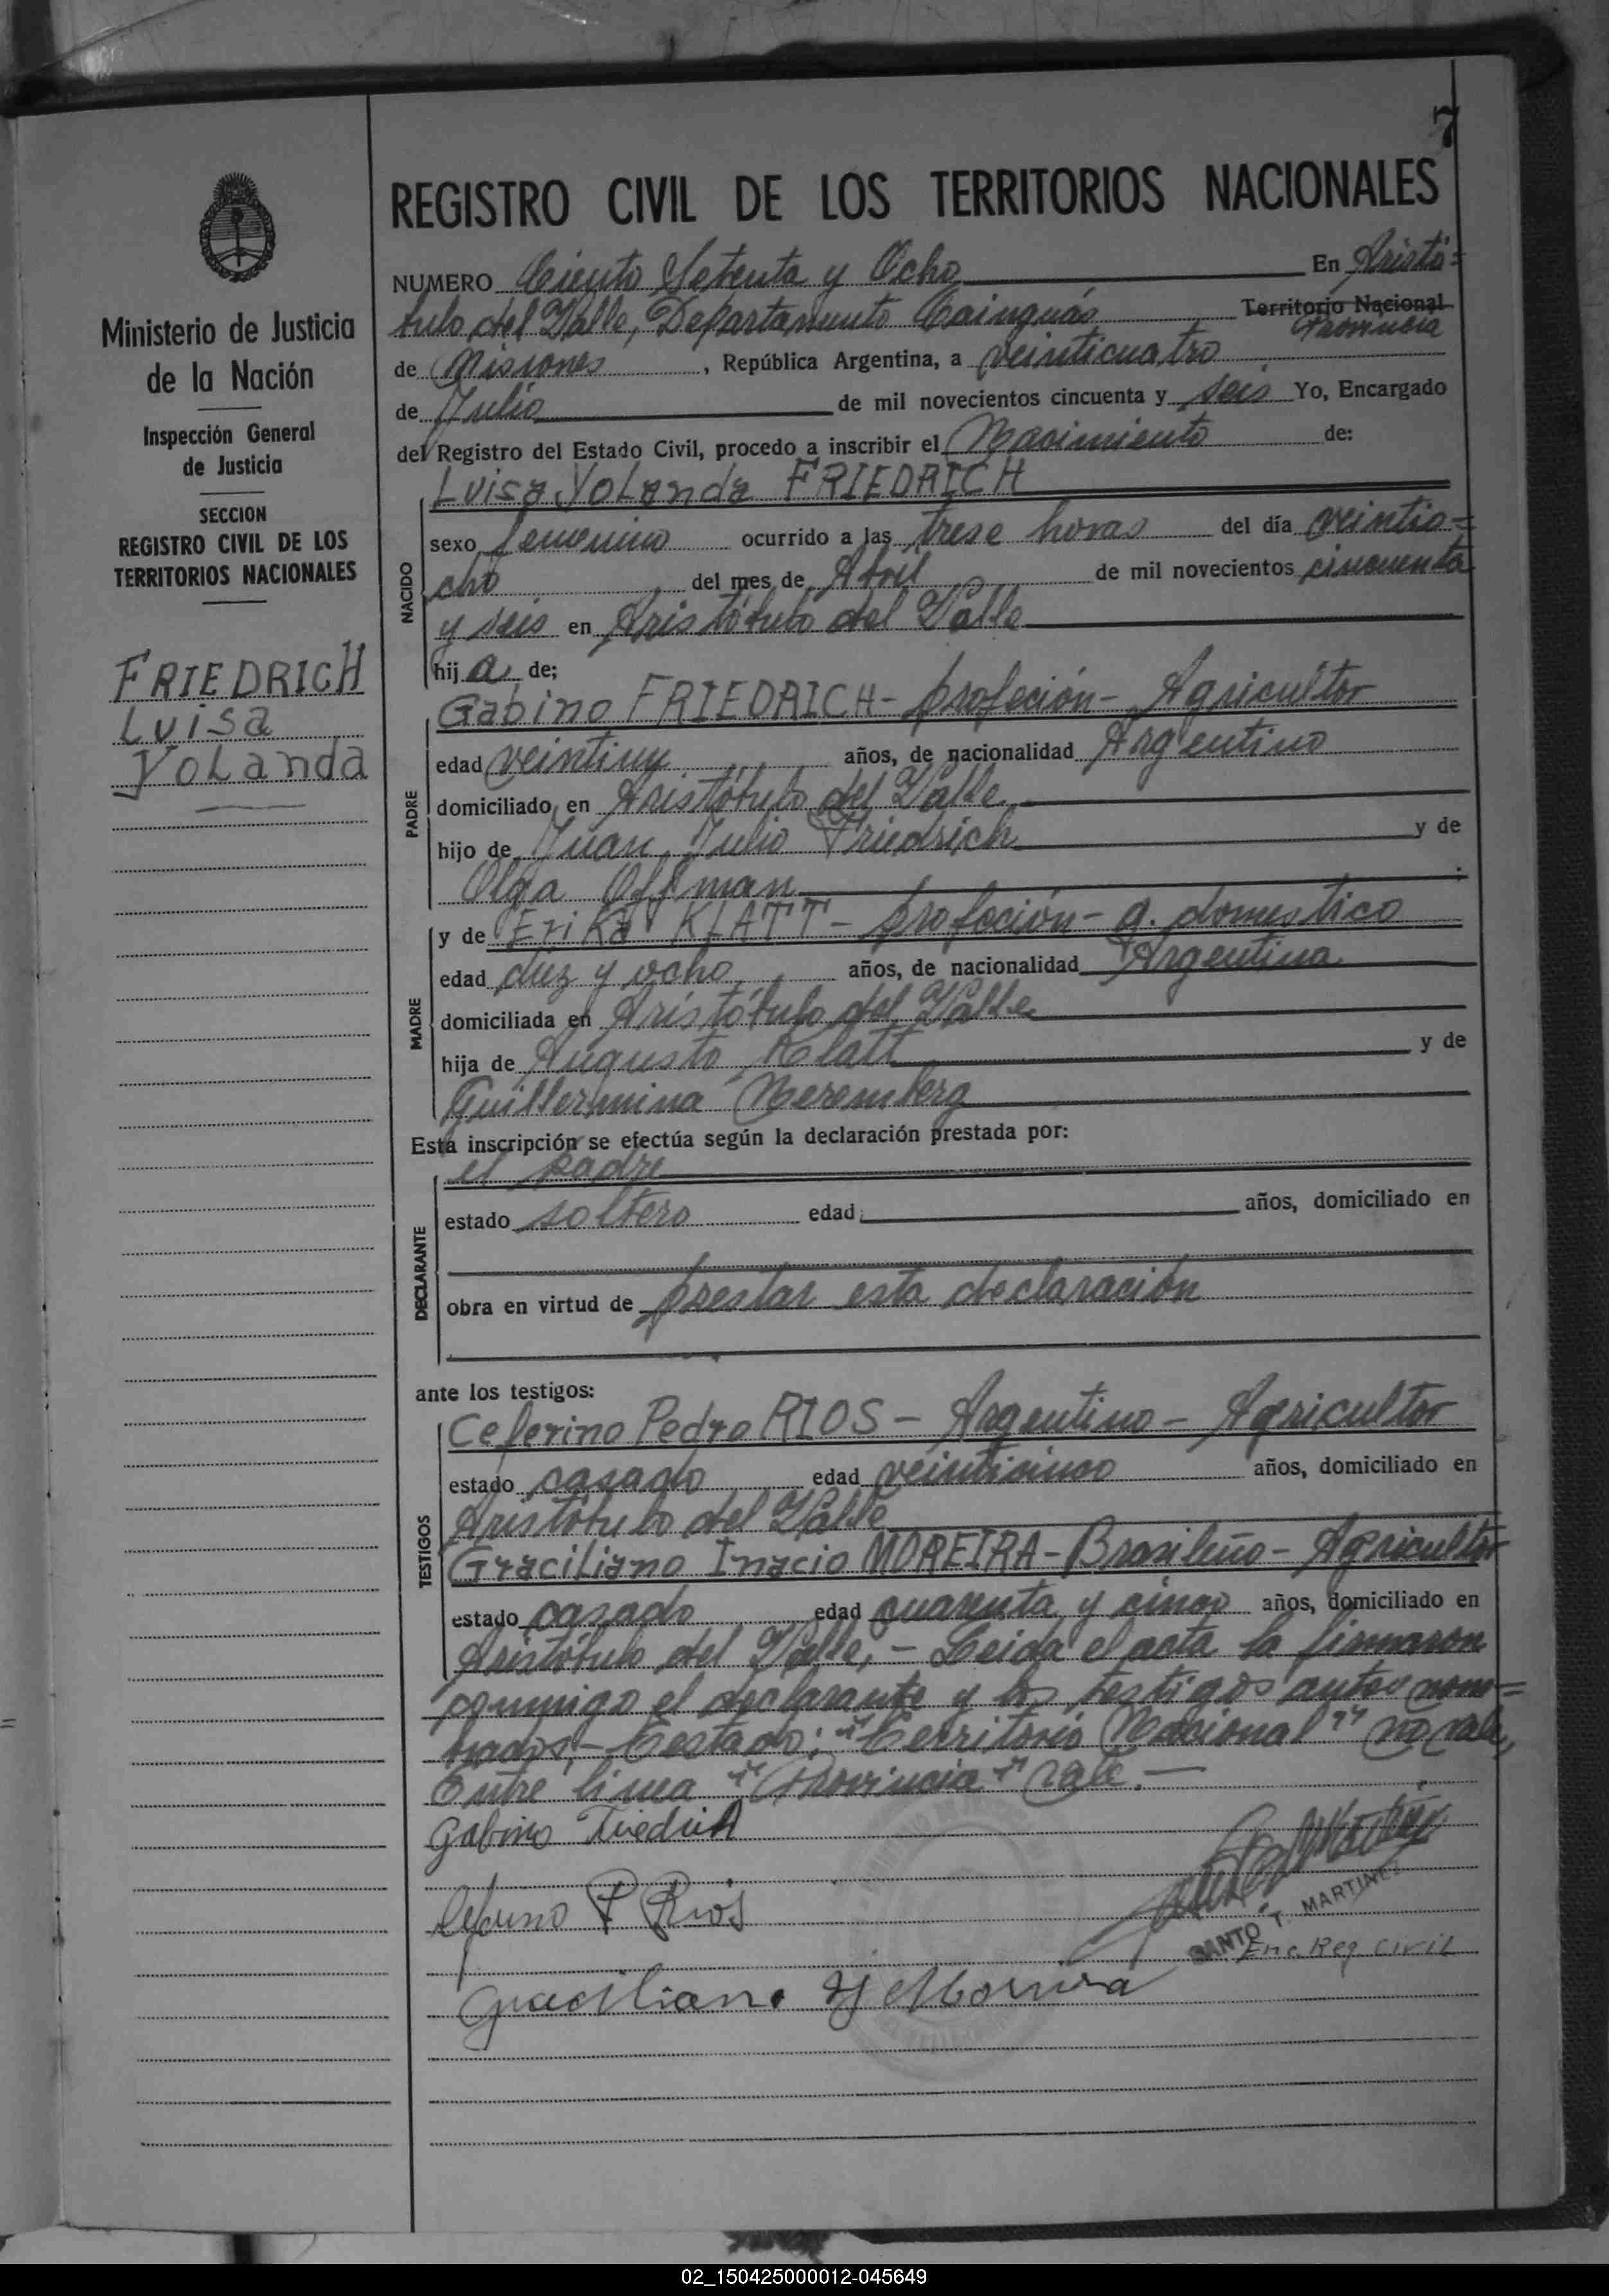 7
REGISTRO CIVIL DE LOS TERRITORIOS NACIONALES
Ministerio de Justicia
de la Nación
Inspección General
de Justicia
SECCION
REGISTRO CIVIL DE LOS
TERRITORIOS NACIONALES
FRIEDRICH
Luisa
Yolanda
NUMERO Ciento Setenta y Ocho En Aristó=
tulo del Valle, Departamento Cainguás Territorio Nacional
Provincia
de Misiones, República Argentina, a veinticuatro
de Julio de mil novecientos cincuenta y seis Yo, Encargado
del Registro del Estado Civil, procedo a inscribir el Nacimiento de:
NACIDO
Luisa Yolanda FRIEDRICH
sexo femenino ocurrido a las trese horas del día veintio=
cho del mes de Abril de mil novecientos cincuenta
y seis en Aristótulo del Valle
hij a de;
PADRE
Gabino FRIEDRICH - profeción - Agricultor
edad veintiuy años, de nacionalidad Argentino
domiciliado en Aristótulo del Valle
hijo de Juan Julio Friedrich y de
Olga Offman ;
MADRE
y de Erika KLATT - profeción - q. domestico
edad diez y ocho años, de nacionalidad Argentina
domiciliada en Aristótulo del Valle
hija de Augusto Klatt y de
Guillermina Neremberg
Esta inscripción se efectúa según la declaración prestada por:
DECLARANTE
el padre
estado soltero edad años, domiciliado en
obra en virtud de prestar esta declaración
ante los testigos:
TESTIGOS
Ceferino Pedro RIOS - Argentino - Agricultor
estado casado edad veinticinco años, domiciliado en
Aristótulo del Valle
Graciliano Inacio MOREIRA - Brasileño - Agricultor
estado casado edad cuarenta y cinco años, domiciliado en
Aristótulo del Valle, - Leida el acta la firmaron
conmigo el declarante y los testigos antes nom=
brados. - Testado: "Territorio Nacional" no vale,
Entre linea "Provincia" vale. -
Gabino Friedrich
Ceferino P Rios
SANTO T. MARTINEZ
Enc. Reg. Civil
Graciliano Y Moreira
02_150425000012-045649